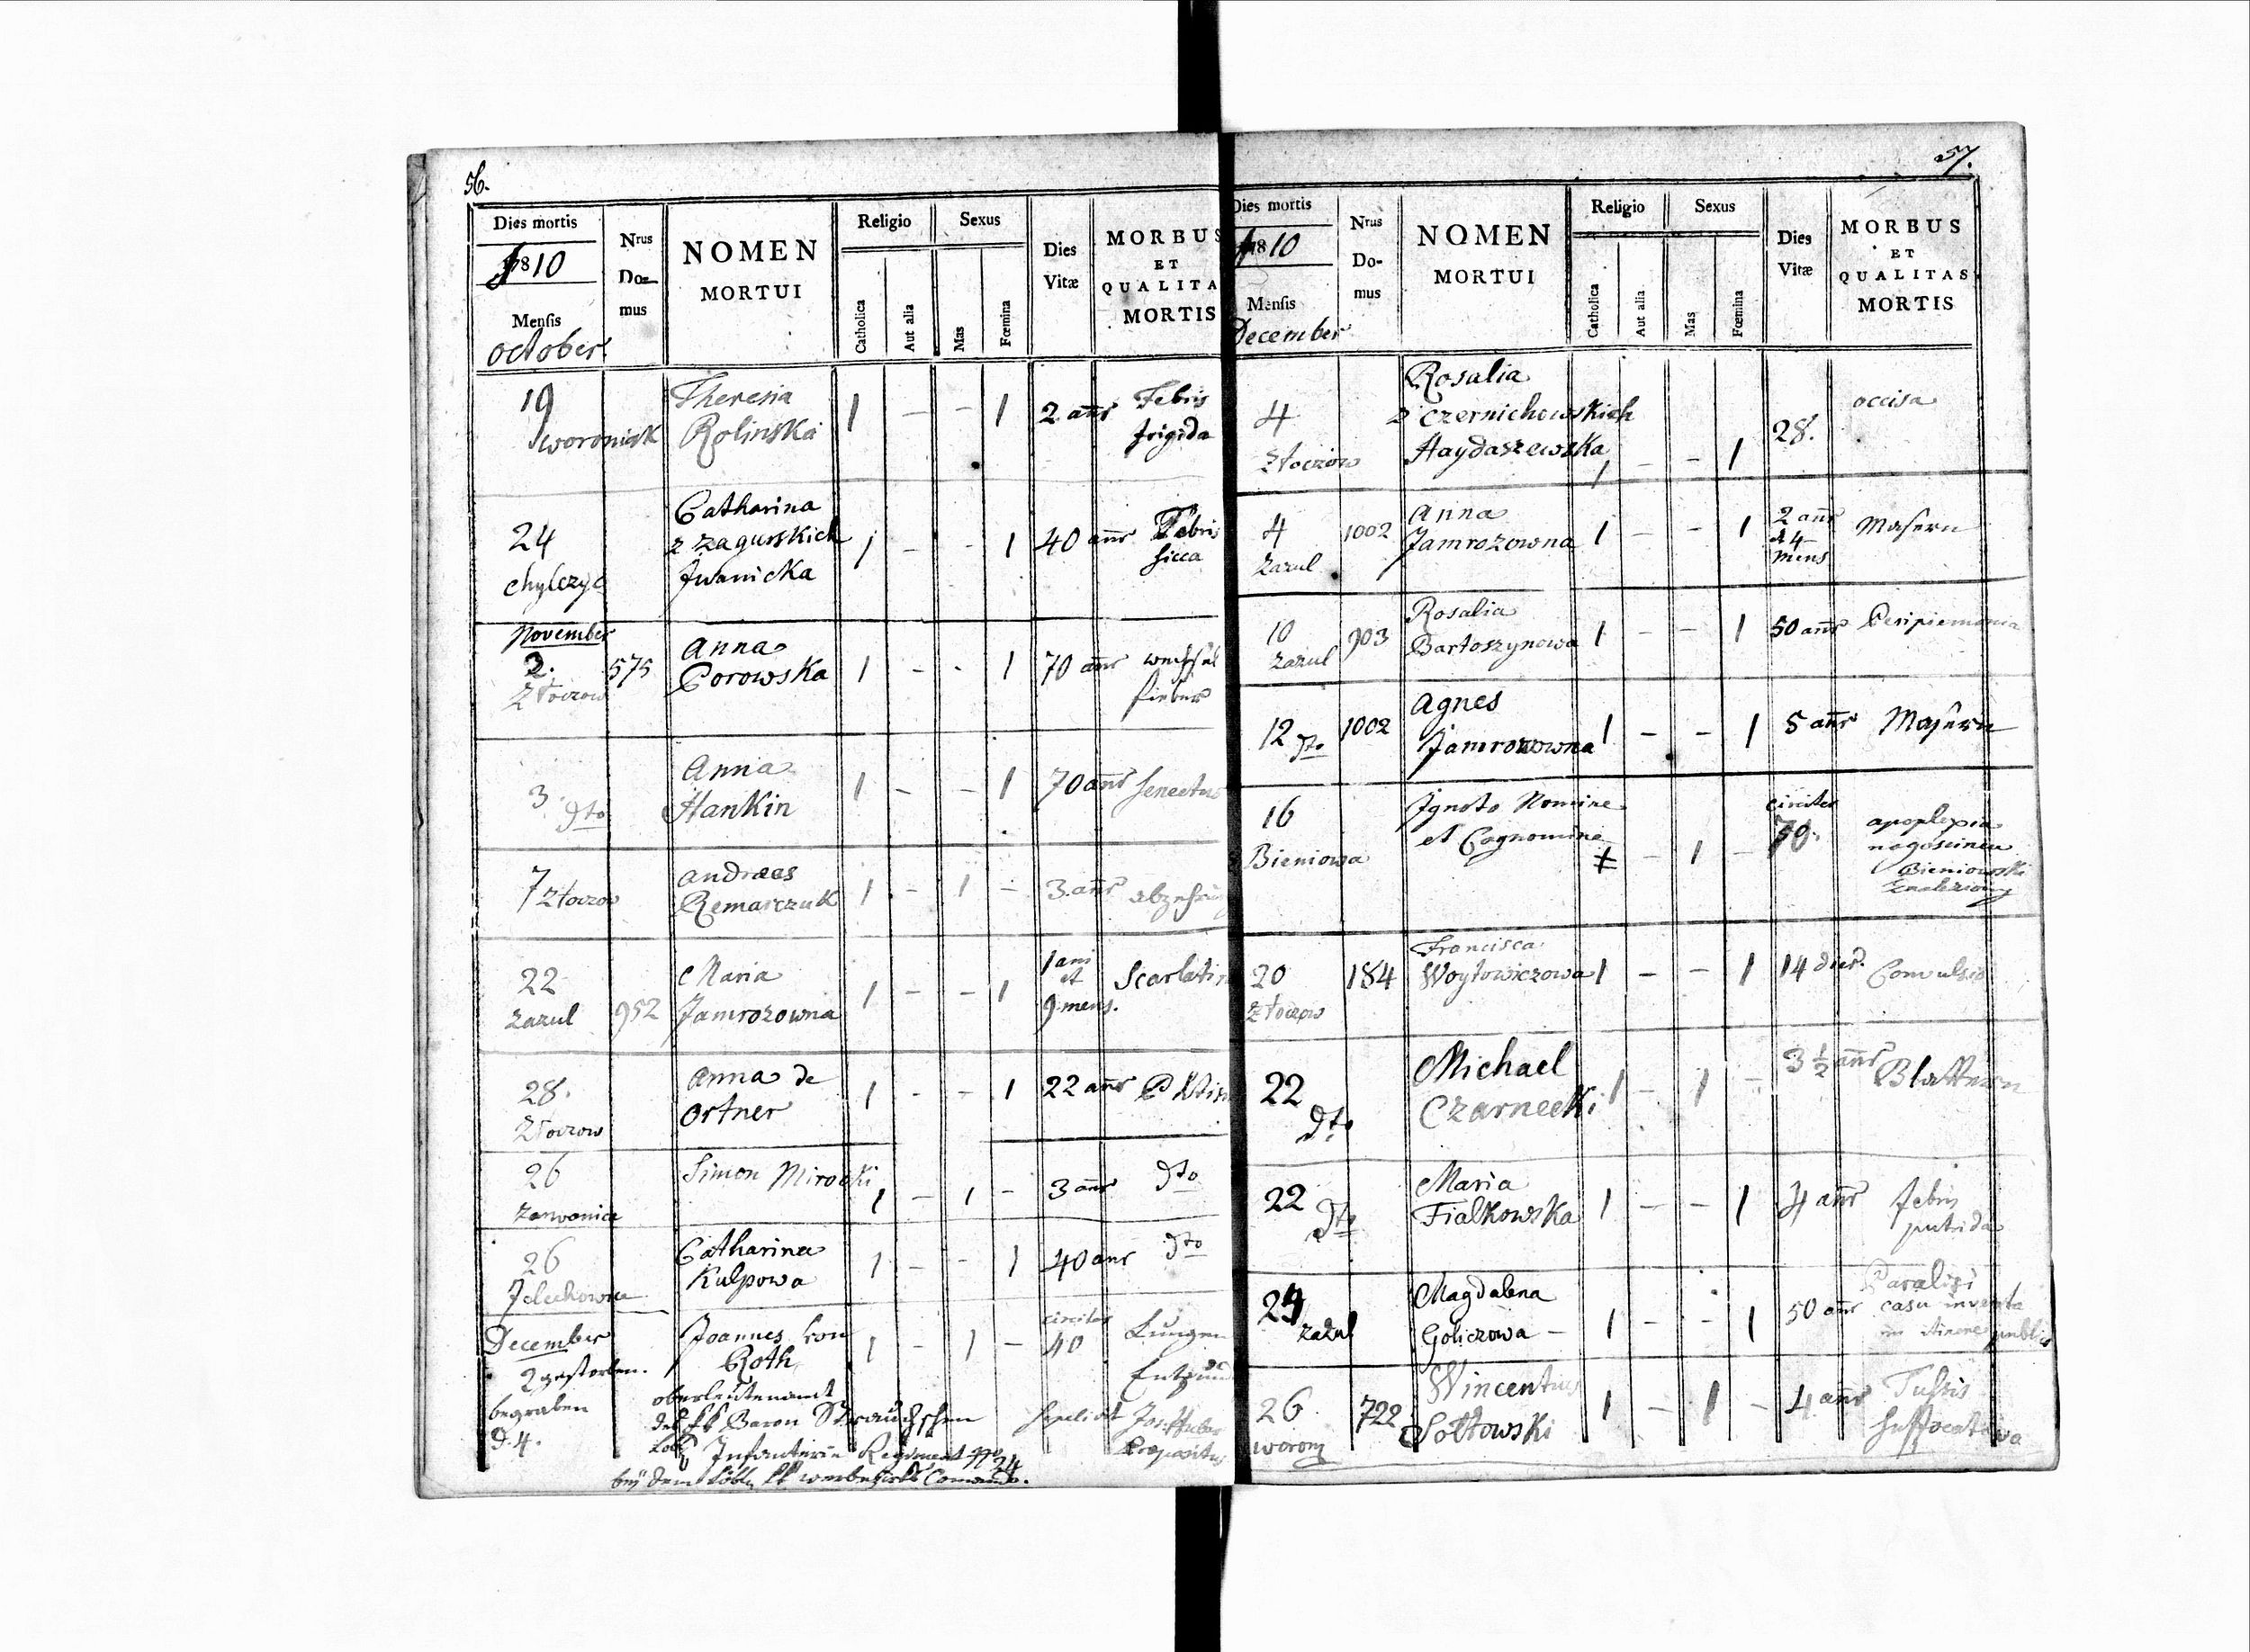 56.
Dies mortis
1810
Mensis
October
Nrus
Do-
mus
NOMEN
MORTUI
Religio
Catholica
Aut alia
Sexus
Mas
Fœmina
Dies
Vitæ
MORBUS
ET
QUALITA
MORTIS
19
Woroniak
Theresia
Rolinska
1 - - 1
2 anr
Febris
frigida
24
Chylczyc
Catharina
z Zagurskich
Jwanicka
1 - - 1
40 anr
Febris
sicca
November
2.
Złoczow
575
Anna
Porowska
1 - - 1
70 anr
wechsel
fieber
3. dto
Anna
Hankin
1 - - 1
70 anr
senectus
7 Złoczow
Andraeas
Remarczuk
1 - 1 -
3. anr
22
Zazul
952
Maria
Jamrozowna
1 - - 1
1 ani
et
9 mens.
Scarlatin
28.
Złoczow
Anna de
Ortner
1 - - 1
22 anr
26
Zarwanica
Simon Mirocki
1 - 1 -
3 anr
dto
26
Jelechowce
Catharina
Kulpowa
1 - - 1
40 anr
dto
December
2 gestorben.
begraben
d. 4.
Joannes von
Roth
oberleutenamt
des kk Baron Strauchschen
Löbl Infanterie Regiment No 24
bey dem Löbl kk werbezirks Comando.
1 - 1 -
circiter
40
Lungen
Entzünd
sepelivit Jos Huber
Praepositus
57.
Dies mortis
1810
Mensis
December
Nrus
Do-
mus
NOMEN
MORTUI
Religio
Catholica
Aut alia
Sexus
Mas
Fœmina
Dies
Vitæ
MORBUS
ET
QUALITAS
MORTIS
4
Złoczow
Rosalia
z Czernichowskich
Haydaszewska
1 - - 1
28.
occisa
4
Zazul
1002
Anna
Jamrozowna
1 - - 1
2 anr
et 4
mens
Masern
10
Zazul
903
Rosalia
Bartoszynowa
1 - - 1
50 anr
Peripiemonia
12 dto
1002
Agnes
Jamrozowna
1 - - 1
5 anr
Masern
16
Bieniowa
Jgnoto Nomine
et Cognomine
- 1 -
circiter
70.
apoplexia
na goscincu
Bieniowski
znaleziony
20
Złoczow
184
Francisca
Woytowiczowa
1 - - 1
14 dier.
Convulsio
22
dto
Michael
Czarnecki
1 - 1 -
3 1/2 anr
Blattern
22
dto
Maria
Fialkowska
1 - - 1
4 anr
febris
putrida
24
Zazul
Magdalena
Goliczowa -
1 - - 1
50 anr
Paralisi
casu inventa
in itinere publico
26
Woron
722
Wincentius
Sołtowski
1 - 1 -
4 anr
Tussis
suffocativa